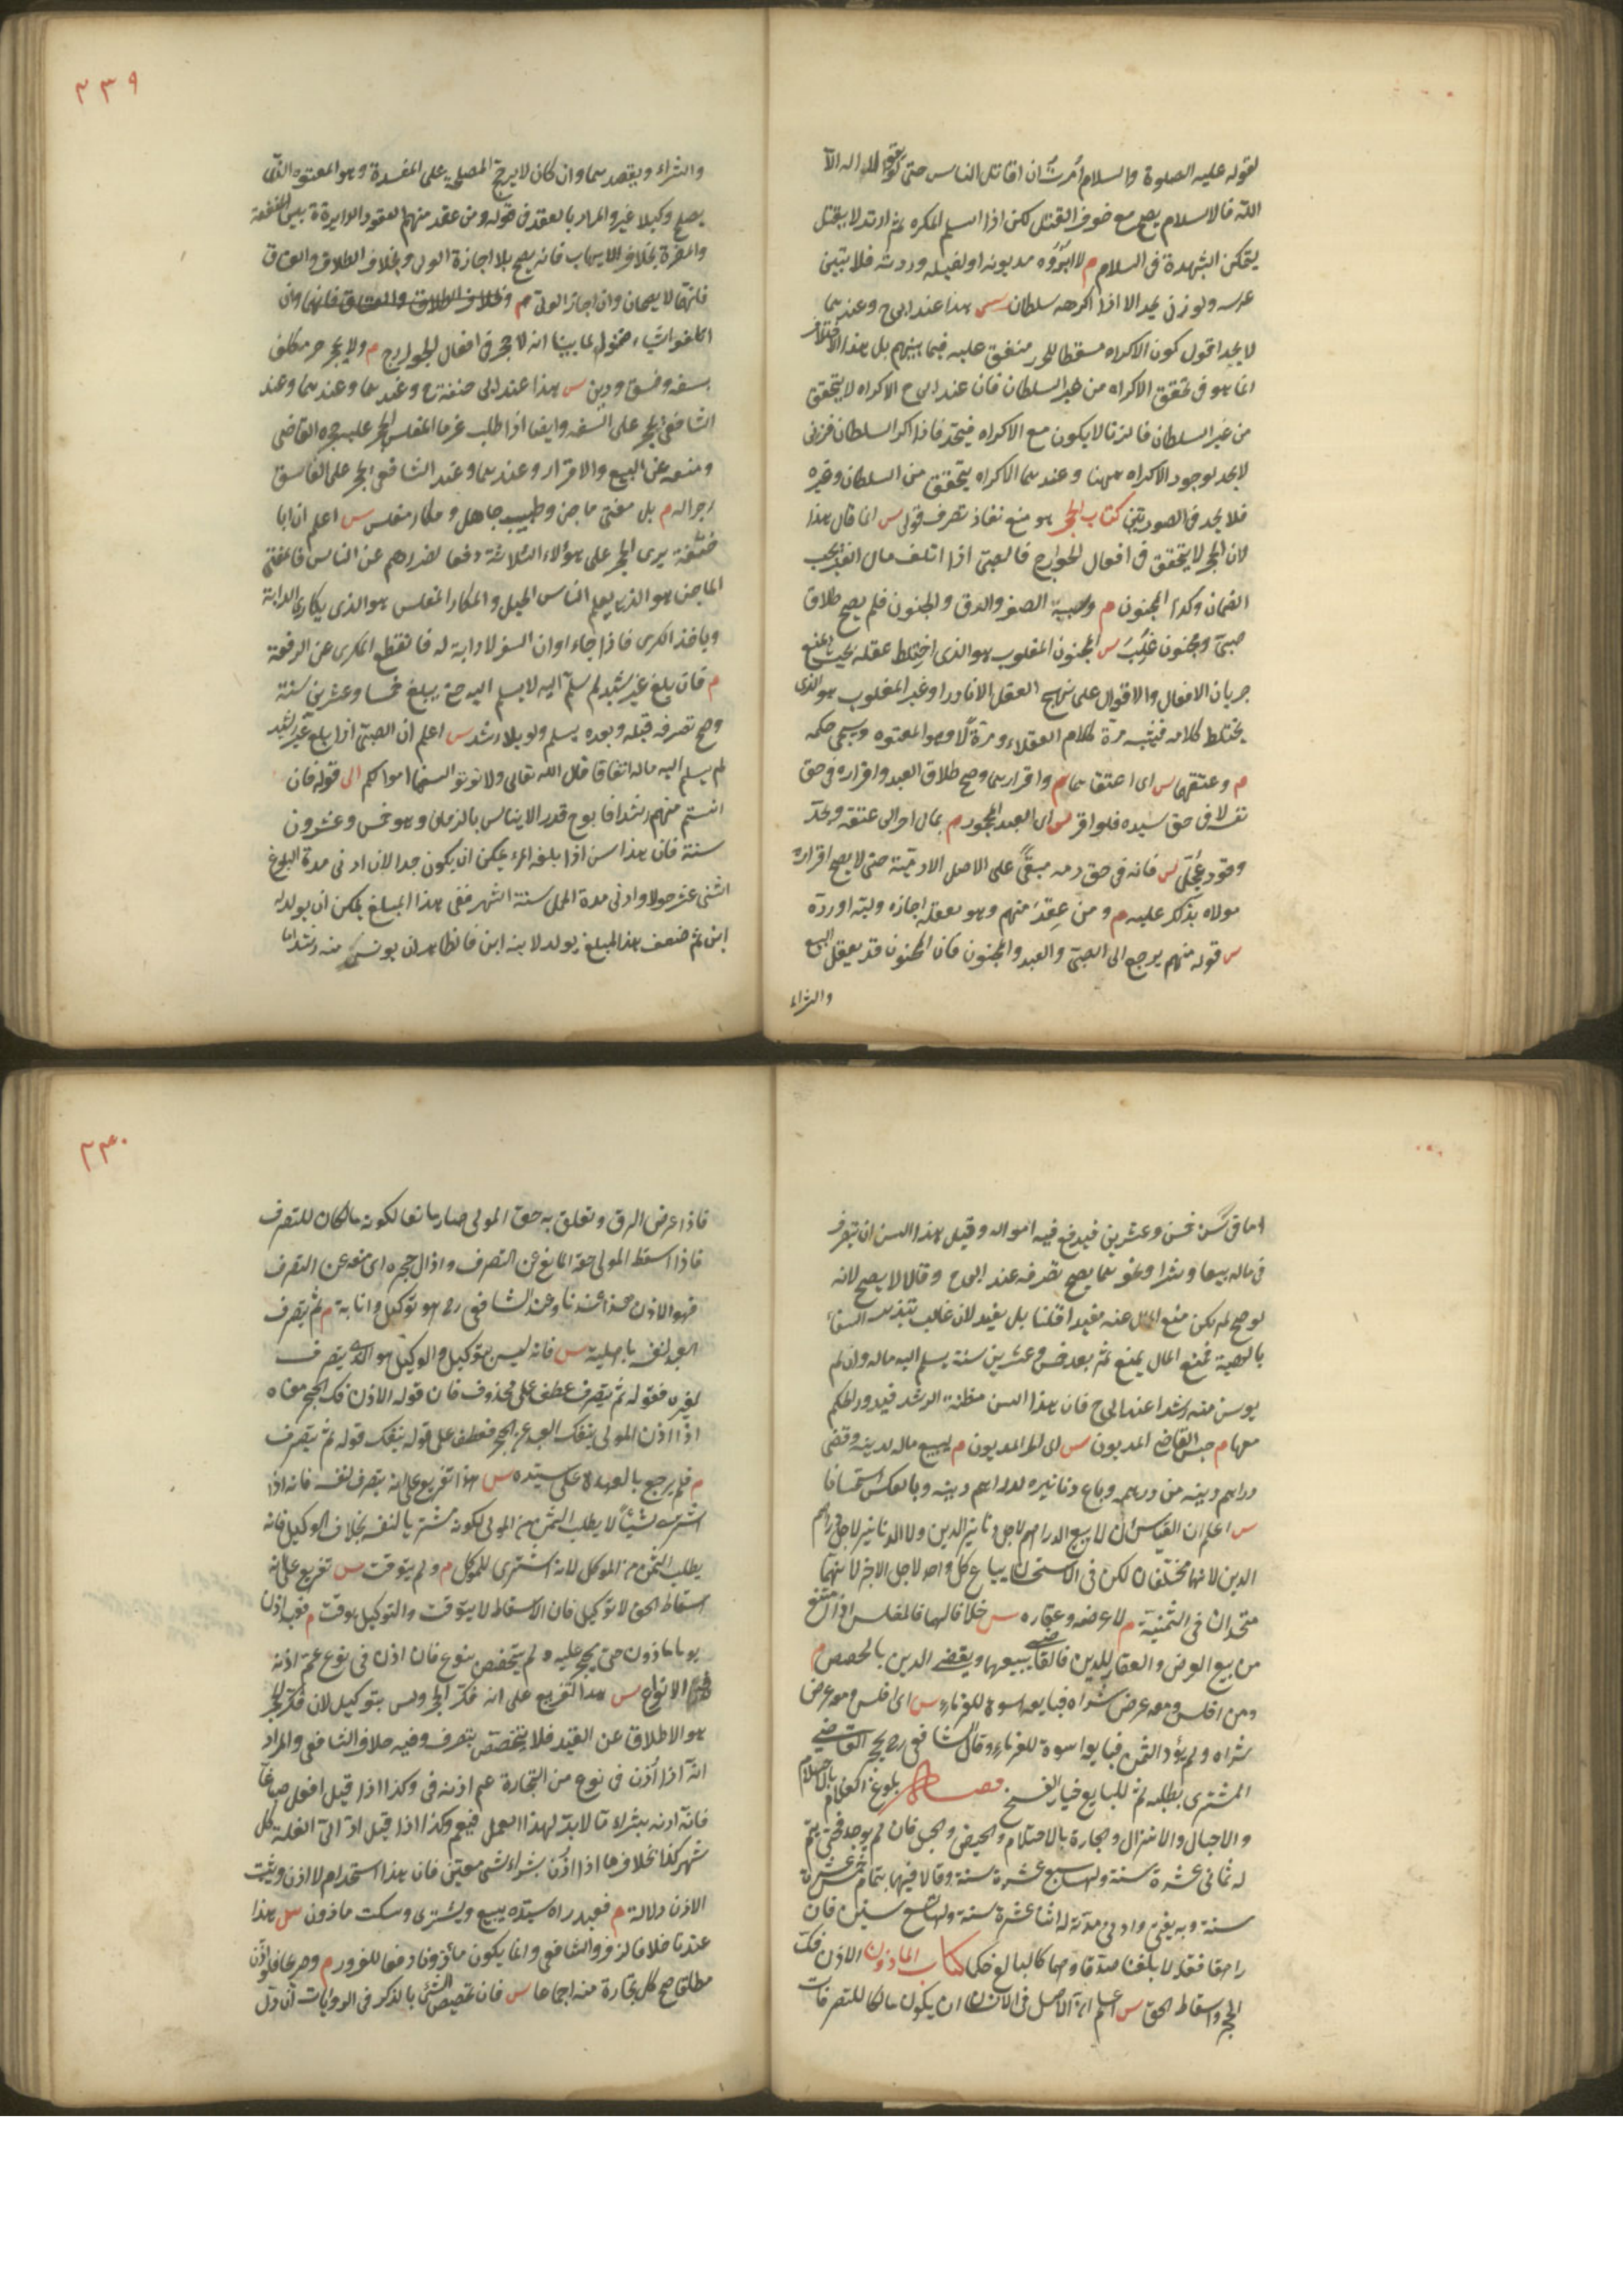 لقوله عليه الصلوة والسلام أمرت ان اقاتل الناس حتى يقولوا لا اله الا
الله فالاسلام يصح مع خوف القتل لكن اذا اسلم المكره ثم ارتد لا يقتل
لتمكن الشبهة فى السلام م لا ابرؤه مديونه او كفيله وردته فلا تبين
عرسه ولو زنى يحد الا اذا اكرهه سلطان س هذا عند ابى ح وعندهما
لا يحد اقول كون الاكراه مسقطا للحد متفق عليه فيما بينهم بل هذا الاختلاف
انما هو فى تحقق الاكراه من غير السلطان فان عند ابى ح الاكراه لا يتحقق
من غير السلطان فالزنا لا يكون مع الاكراه فيحد فاذا اكره السلطان فزنى
لا يحد لوجود الاكراه ههنا وعندهما الاكراه يتحقق من السلطان وغيره
فلا يحد فى الصورتين كتاب الحجر هو منع نفاذ تصرف قولى س انما قال هذا
لان الحجر لا يتحقق فى افعال الجوارح فالصبى اذا اتلف مال الغير يجب
الضمان وكذا المجنون م وسببه الصغر والرق والجنون فلم يصح طلاق
صبى ومجنون غلب س المجنون المغلوب هو الذى اختلط عقله بحيث يمنع
جريان الافعال والاقوال على نهج العقل الا نادرا وغير المغلوب هو الذى
يختلط كلامه فيشبه مرة كلام العقلاء ومرة لا وهو المعتوه وسيجى حكمه
م وعتقهما س اى اعتقاهما م واقرارهما وصح طلاق العبد واقراره فى حق
نفسه لا فى حق سيده فلو اقر س اى العبد المحجور م بمال اخر الى عتقه وبحد
وقود عجل س فانه فى حق دمه مبقى على الاصل الادمية حتى لا يصح اقرار
مولاه بذلك عليه م ومن عقد منهم وهو يعقله اجازه وليه او رده
س قوله منهم يرجع الى الصبى والعبد والمجنون فان المجنون قد يعقل البيع
والشراء
٣٣٩
والشراء ويقصدهما وان كان لا يرجح المصلحة على المفسدة وهو المعتوه الذى
يصلح وكيلا غيره والمراد بالعقد فى قوله ومن عقد منهم العقود الدايرة بين النفع
والمضرة بخلاف الايهاب فانه يصح بلا اجازة الولى وبخلاف الطلاق والعتاق
فانهما لا يصحان وان اجاز الولى م وان
اتلفوا شيئا ضمنوا لما بينا انه لا حجر فى افعال الجوارح م ولا يحجر حر مكلف
بسفه وفسق ودين س هذا عند ابى حنفة رح وعندهما وعند
الشافعى يحجر على السفيه وايضا اذا طلب غرماء المفلس الحجر عليه حجره القاضى
ومنعه عن البيع والاقرار وعندهما وعند الشافعى يحجر على الفاسق
زجرا له م بل مفتى ماجن وطبيب جاهل ومكار مفلس س اعلم ان ابا
حنيفة يرى الحجر على هؤلاء الثلاثة دفعا لضررهم عن الناس فالمفتى
الماجن هو الذى يعلم الناس الحيل والمكار المفلس هو الذى يكارى الدابة
وياخذ الكرى فاذا جاء اوان السفر لا دابة له فانقطع المكرى عن الرفقة
م فان بلغ غير رشيد لم يسلم اليه حتى يبلغ خمسا وعشرين سنة
وصح تصرفه قبله وبعده يسلم ولو بلا رشد س اعلم ان الصبى اذا بلغ غير رشيد
لم يسلم اليه ماله اتفاقا قال الله تعالى ولا تؤتوا السفهاء اموالكم الى قوله فان
انستم منهم رشدا فابو ح قدر الايناس بالزمان وهو خمس وعشرون
سنة فان هذا سن اذا بلغه المرء يمكن ان يكون جدا لان ادنى مدة البلوغ
اثنى عشر حولا وادنى مدة الحمل ستة اشهر ففى هذا المبلغ يمكن ان يولد له
ابن ثم ضعف هذا المبلغ يولد لابنه ابن فالظاهر ان يونس منه رشدا ما
اما فى سن خمس وعشرين فيدفع فيه امواله وقبل هذا السن ان تصرف
فى ماله بيعا وشراء ونحوهما يصح تصرفه عند ابى ح وقالا لا يصح لانه
لو صح لم يكن منع المال عنه مفيدا قلنا بل يفيد لان غالب تبذير السفهاء
بالهبة فمنع المال يمنع ثم بعد خمس وعشرين سنة يسلم اليه ماله وان لم
يونس منه رشدا عند ابى ح فان هذا السن مظنة الرشد فيدور الحكم
معها م حبس القاضى المديون س اى الحر المديون م ليبيع ماله لدينه وقضى
دراهم دينه من دراهمه وباع دنانيره لدراهم دينه وبالعكس استحسانا
س اعلم ان القياس ان لا يبيع الدراهم لاجل دنانير الدين ولا الدنانير لاجل دراهم
الدين لانهما مختلفان لكن فى الاستحسان يباع كل واحد لاجل الاخر لانهما
متحدان فى الثمنية م لا عرضه وعقاره س خلافا لهما فالمفلس اذا امتنع
من بيع العرض والعقار للدين فالقاضى يبيعهما ويقضى الدين بالحصص م
ومن افلس ومعه عرض شراه فبايعه اسوة للغرماء س اى افلس ومعه عرض
شراه ولم يؤد الثمن فبايعه اسوة للغرماء وقال الشافعى رح يحجر القاضى
المشترى بطلبه ثم للبايع خيار الفسخ فصل بلوغ الغلام بالاحتلام
والاحبال والانزال والجارية بالاحتلام والحيض والحبل فان لم يوجد فحتى يتم
له ثمانى عشرة سنة ولها سبع عشرة سنة وقالا فيهما بتمام خمس عشرة
سنة وبه يفتى وادنى مدته له اثنا عشرة سنة ولها تسع سنين فان
راهقا فقالا بلغنا صدقا وهما كالبالغ حكما كتاب الماذون الاذن فك
الحجر واسقاط الحق س اعلم ان الاصل فى الانسان ان يكون مالكا للتصرفات
٣٤٠
فاذا عرض الرق وتعلق به حق المولى صار مانعا لكونه مالكا للتصرف
فاذا اسقط المولى حقه المانع عن التصرف وازال حجره اى منعه عن التصرف
فهو الاذن هذا عندنا وعند الشافعى رح هو توكيل وانابة م ثم يتصرف
العبد لنفسه باهليته س فانه ليس بتوكيل والوكيل هو الذى يتصرف
لغيره فقوله ثم يتصرف عطف على محذوف فان قوله الاذن فك الحجر معناه
اذا اذن المولى ينفك العبد عن الحجر فعطف على قوله ينفك قوله ثم يتصرف
م فلم يرجع بالعهدة على سيده س هذا تفريع على انه يتصرف لنفسه فانه اذا
اشترى شيئا لا يطلب الثمن من المولى لكونه مشتريا لنفسه بخلاف الوكيل فانه
يطلب الثمن من الموكل لانه اشترى للموكل م ولم يتوقت س تفريع على انه
اسقاط الحق لا توكيل فان الاسقاط لا يتوقت والتوكيل يوقت م فعبد اذن
يوما ماذون حتى يحجر عليه ولم يتخصص بنوع فان اذن فى نوع عم اذنه
الانواع س هذا التفريع على انه فك الحجر وليس بتوكيل لان فك الحجر
هو الاطلاق عن القيد فلا يتخصص بتصرف وفيه خلاف الشافعى والمراد
انه اذا اذن فى نوع من التجارة عم اذنه فى وكذا اذا قيل اقعد صباغا
فانه اذن بشراء ما لا بد لهذا العمل فيعم وكذا اذا قيل اد الى الغلة كل
شهر كذا بخلاف ما اذا اذن بشراء شى معين فان هذا استخدام لا اذن ويثبت
الاذن دلالة م فعبد راه سيده يبيع ويشترى وسكت ماذون س هذا
عندنا خلافا لزفر والشافعى وانما يكون ماذونا دفعا للغرور م وصريحا فلو اذن
مطلقا صح كل تجارة منه اجماعا س فان تخصيص الشئ بالذكر فى الروايات ان دل